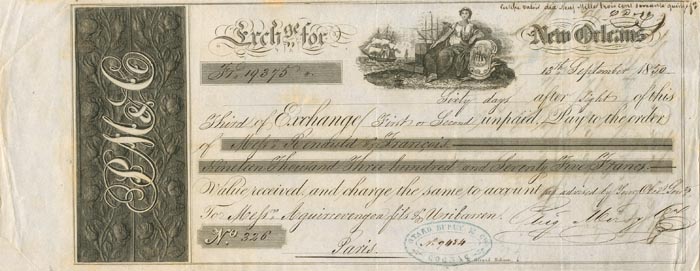 Exch.ge for
New Orleans
Fr. 19375
15th September 1850
Sixty days after Sight of this
Third of Exchange (First or Second unpaid) Pay to the order
of Mess.rs Renauld & François
Nineteen Thousand Three hundred and Seventy Five Francs
Value received, and charge the same to account as advised by
To Mess.rs Aguirrevengoa fils & Uribarren
Paris.
No. 326
OTARD DUPUY & CO
COGNAC
No 9484